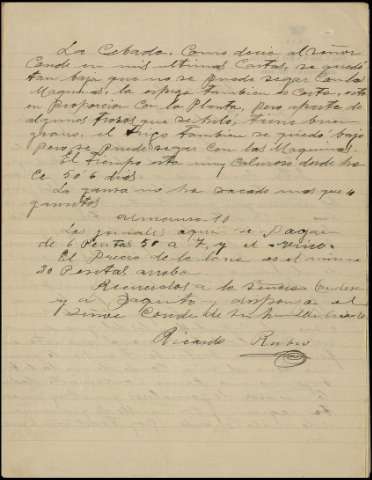 La Cebada. Como decia al señor
Conde en mis ultimas Cartas, se quedó
tan baja que no se puede segar con la
Maquina, la espiga tambien es Corta, esta
en Proporcion Con la Planta, pero aparte de
algunos trozos que se helo, tiene buen
grano, el trigo tambien se quedó bajo
pero se puede segar con las Maquinas.
El tiempo esta muy Caluroso desde ha
Ce 5 ó 6 dias
La no ha sacado mas que 4
10
Los jornales aqui se Pagan
de 6 Pesetas 50 a 7, y el vino.
El Precio de la lana es el mismo
30 Pesetas arroba
Recuerdos a la Señora
y a y disponga el
Señor Conde de
Ricardo Rubio